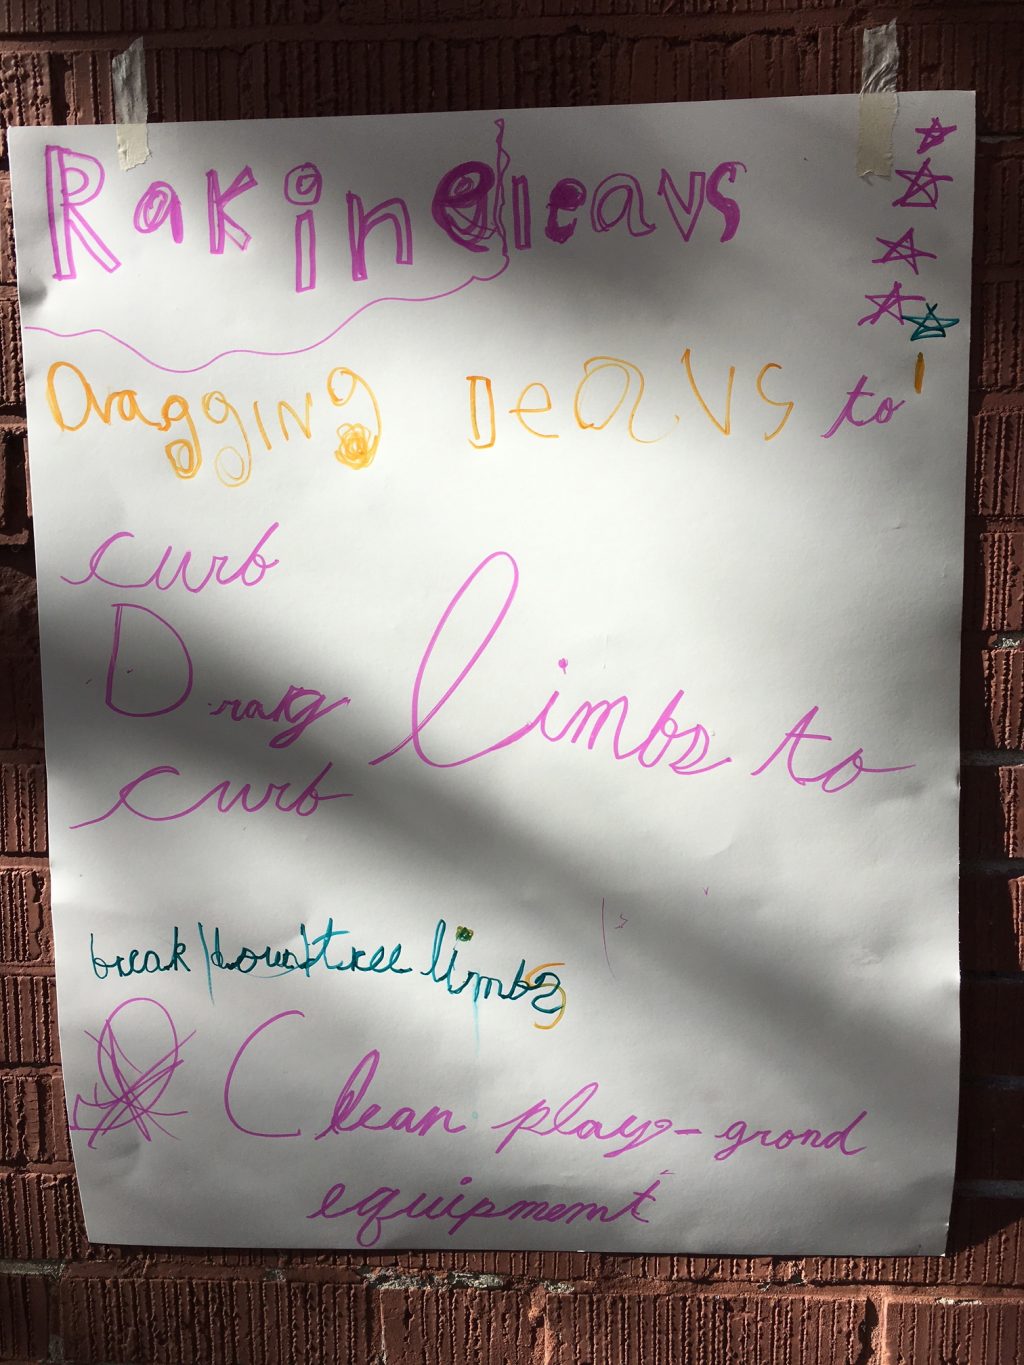 Raking leavs
Dragging Leavs to
curb
Drag limbs to
curb
break/down/tree limbs
Clean play-grond
equipment